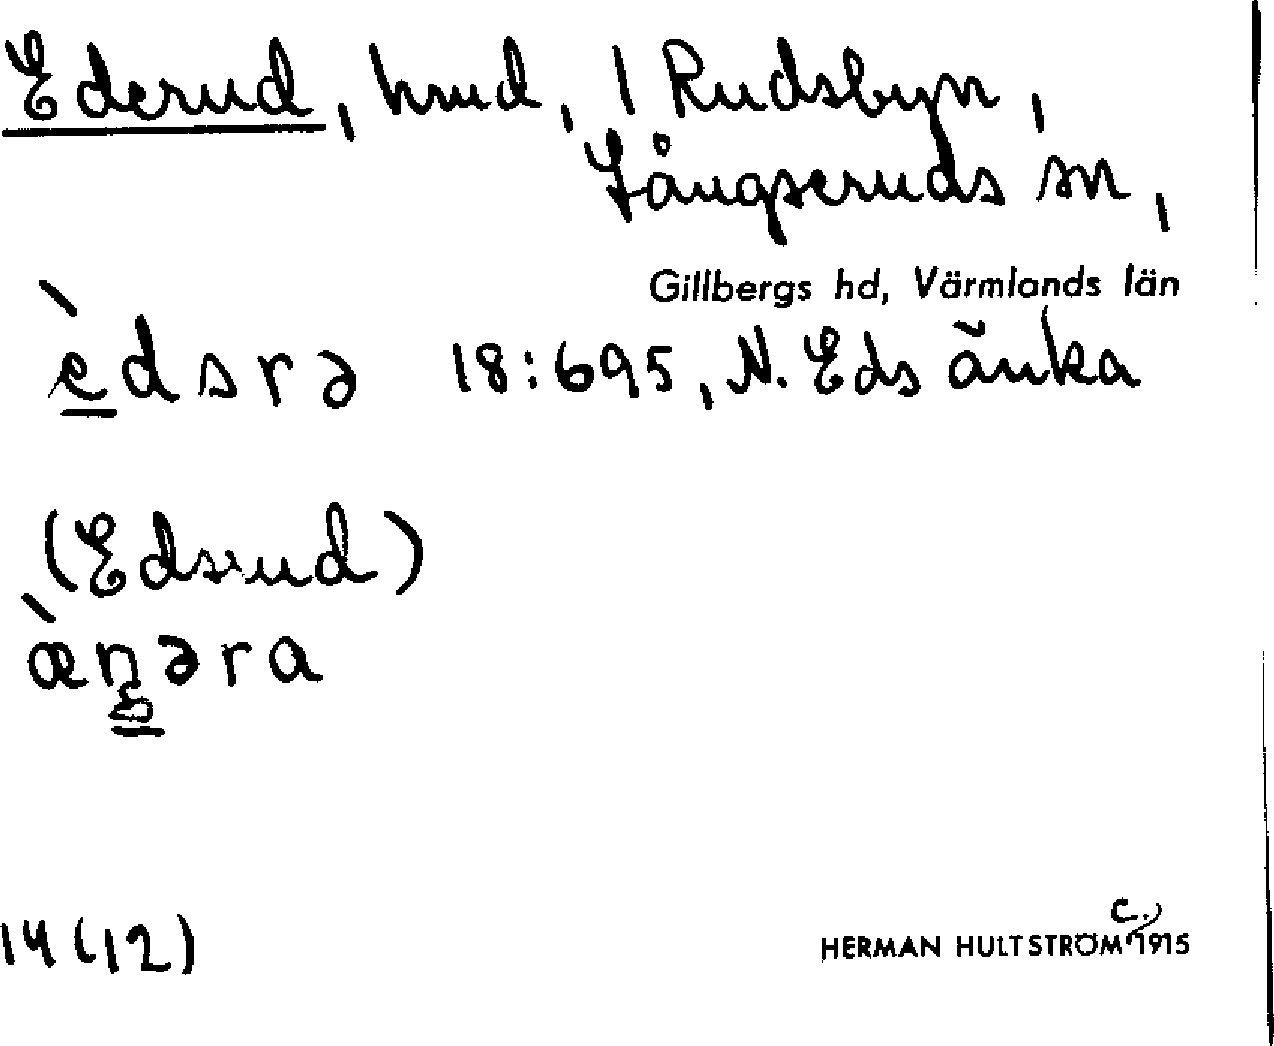 Ederud, hmd, 1 Rudsbyn,
Långseruds sn,
Gillbergs hd, Värmlands län
èdsrə 18:695, N. Eds änka
(Edsrud)
14 (12)
HERMAN HULTSTRÖM C., 1915